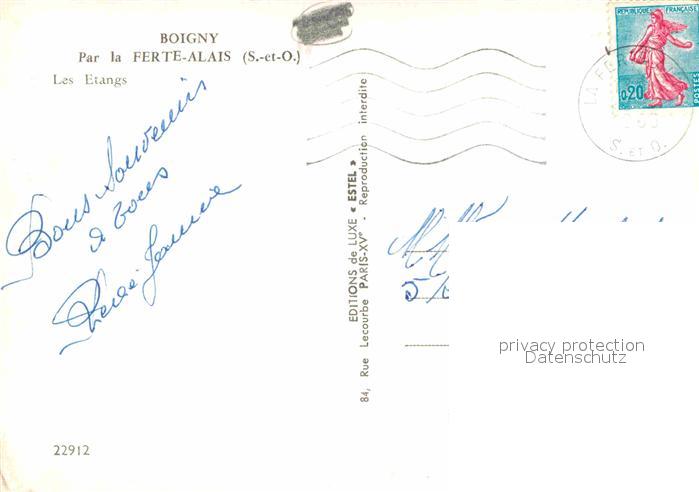 BOIGNY
Par la FERTE-ALAIS (S.-et-O.)
Les Etangs
Bons Souvenirs
à tous
22912
EDITIONS de LUXE « ESTEL »
84, Rue Lecourbe PARIS-XVᵉ - Reproduction interdite
REPUBLIQUE FRANÇAISE
0,20
POSTES
LA FER
S. ET O.
privacy protection
Datenschutz